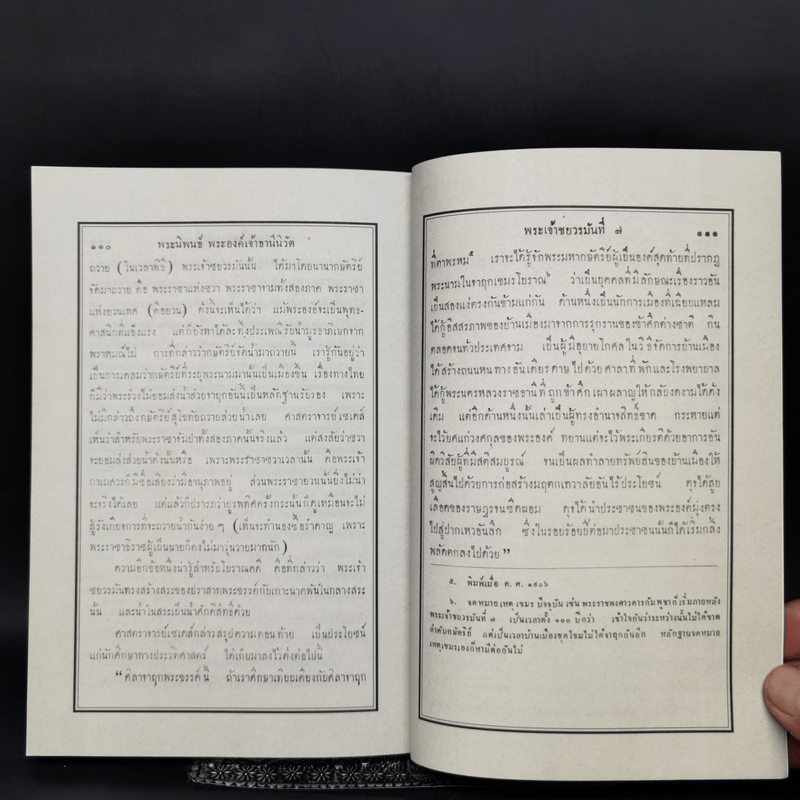 ๑๑๐ พระนิพนธ์ พระองค์เจ้าธานีนิวัต
ถวาย (ในเวลาพิธี) พระเจ้าชยวรมันนั้น ได้มาโดยนานากษัตริย์
จัดมาถวาย คือ พระราชาแห่งชวา พระราชาจามทั้งสองภาค พระราชา
แห่งยวนเทศ (คือยวน) ดังนี้จะเห็นได้ว่า แม้พระองค์จะเป็นพุทธ-
ศาสนิกที่แข็งแรง แต่ก็ยังหาได้ละทิ้งประเพณีรับน้ำมูรธาภิเษกจาก
พราหมณ์ไม่ การที่กล่าวว่ากษัตริย์จัดน้ำมาถวายนี้ เรารู้กันอยู่ว่า
เป็นการเคลมว่ากษัตริย์ที่ระบุพระนามมานั้นเป็นเมืองขึ้น เรื่องทางไทย
ก็มีว่าพระร่วงไม่ยอมส่งน้ำส่วยจารุกอันนี้เป็นหลักฐานรับรอง เพราะ
ไม่มีกล่าวถึงกษัตริย์สุโขทัยถวายส่วยน้ำเลย ศาสตราจารย์เซเดส์
เห็นว่าสำหรับพระราชาจัมปาทั้งสองภาคนั้นจริงแล้ว แต่สงสัยว่าชวา
จะยอมส่งส่วยน้ำดังนั้นหรือ เพราะพระราชาชวาเวลานั้น คือพระเจ้า
กาเมศวรก็มีชื่อเสียงว่ามีอานุภาพอยู่ ส่วนพระราชายวนนั้นยิ่งไม่น่า
จะจริงได้เลย แต่แล้วก็ปรารภว่าบูรพทิศครั้งกระนั้นก็ดูเหมือนจะไม่
สู้รังเกียจการที่จะถวายน้ำกันง่าย ๆ (เห็นจะทำนองซื้อรำคาญ เพราะ
พระราชาธิราชผู้เป็นนายก็คงไม่มาวุ่นวายมากนัก)
ความอีกข้อหนึ่งน่ารู้สำหรับโบราณคดี คือที่กล่าวว่า พระเจ้า
ชยวรมันทรงสร้างสระของปราสาทพระขรรค์กับเกาะนาคพันในกลางสระ
นั้น และน้ำในสระเป็นน้ำศักดิ์สิทธิ์ด้วย
ศาสตราจารย์เซเดส์กล่าวสรุปความตอนท้าย เป็นประโยชน์
แก่นักศึกษาทางประวัติศาสตร์ ได้เก็บมาลงไว้ดังต่อไปนี้
“ศิลาจารุกพระขรรค์นี้ ถ้าเราศึกษาเทียบเคียงกับศิลาจารุก
พระเจ้าชยวรมันที่ ๗ ๑๑๑
ที่ตาพรหม๕ เราจะได้รู้จักพระมหากษัตริย์ผู้เป็นองค์สุดท้ายที่ปรากฏ
พระนามในจารุกเขมรโบราณ๖ ว่าเป็นบุคคลที่มีลักษณะเรื่องราวอัน
เป็นสองแง่ตรงกันข้ามแก่กัน ด้านหนึ่งเป็นนักการเมืองที่เฉียบแหลม
ได้กู้อิสสรภาพของบ้านเมืองมาจากการรุกรานของข้าศึกต่างชาติ กิน
ตลอดจนทั่วประเทศจาม เป็นผู้มีอุบายโกศลในวิธีจัดการบ้านเมือง
ได้สร้างถนนหนทางอันเดียรดาษไปด้วยศาลาที่พักและโรงพยาบาล
ได้กู้พระนครหลวงราชธานีที่ถูกข้าศึกเผาผลาญให้กลับงดงามได้ดัง
เดิม แต่อีกด้านหนึ่งนั้นเล่าเป็นผู้ทรงอำนาจสิทธิ์ขาด กระหายแต่
จะไว้ยศแก่วงศกุลของพระองค์ ทยานแต่จะไว้พระเกียรติด้วยอาการอัน
ผิดวิสัยผู้ที่มีสติสมบูรณ์ จนเป็นผลทำลายทรัพย์สินของบ้านเมืองให้
สูญสิ้นไปด้วยการก่อสร้างมฤตกเทวาลัยอันไร้ประโยชน์ ดุจได้สูบ
เลือดของราษฎรจนซีดผอม ดุจได้นำประชาชนของพระองค์มุ่งตรง
ไปสู่ปากเหวอันลึก ซึ่งในรอยร้อยปีต่อมาประชาชนนั้นก็ได้เริ่มกลิ้ง
พลัดตกลงไปด้วย”
๕. พิมพ์เมื่อ ค. ศ. ๑๙๐๖
๖. จดหมายเหตุเขมรปัจจุบัน เช่นพระราชพงศาวดารกัมพูชาก็เริ่มภายหลัง
พระเจ้าชยวรมันที่ ๗ เป็นเวลาตั้ง ๑๐๐ ปีกว่า เข้าใจกันว่าระหว่างนั้นไม่ได้ขาด
ลำดับกษัตริย์ แต่เป็นเวลาบ้านเมืองซุดโซมไม่ได้จารุกกันอีก หลักฐานจดหมาย
เหตุเขมรเองก็หามีต่อกันไม่